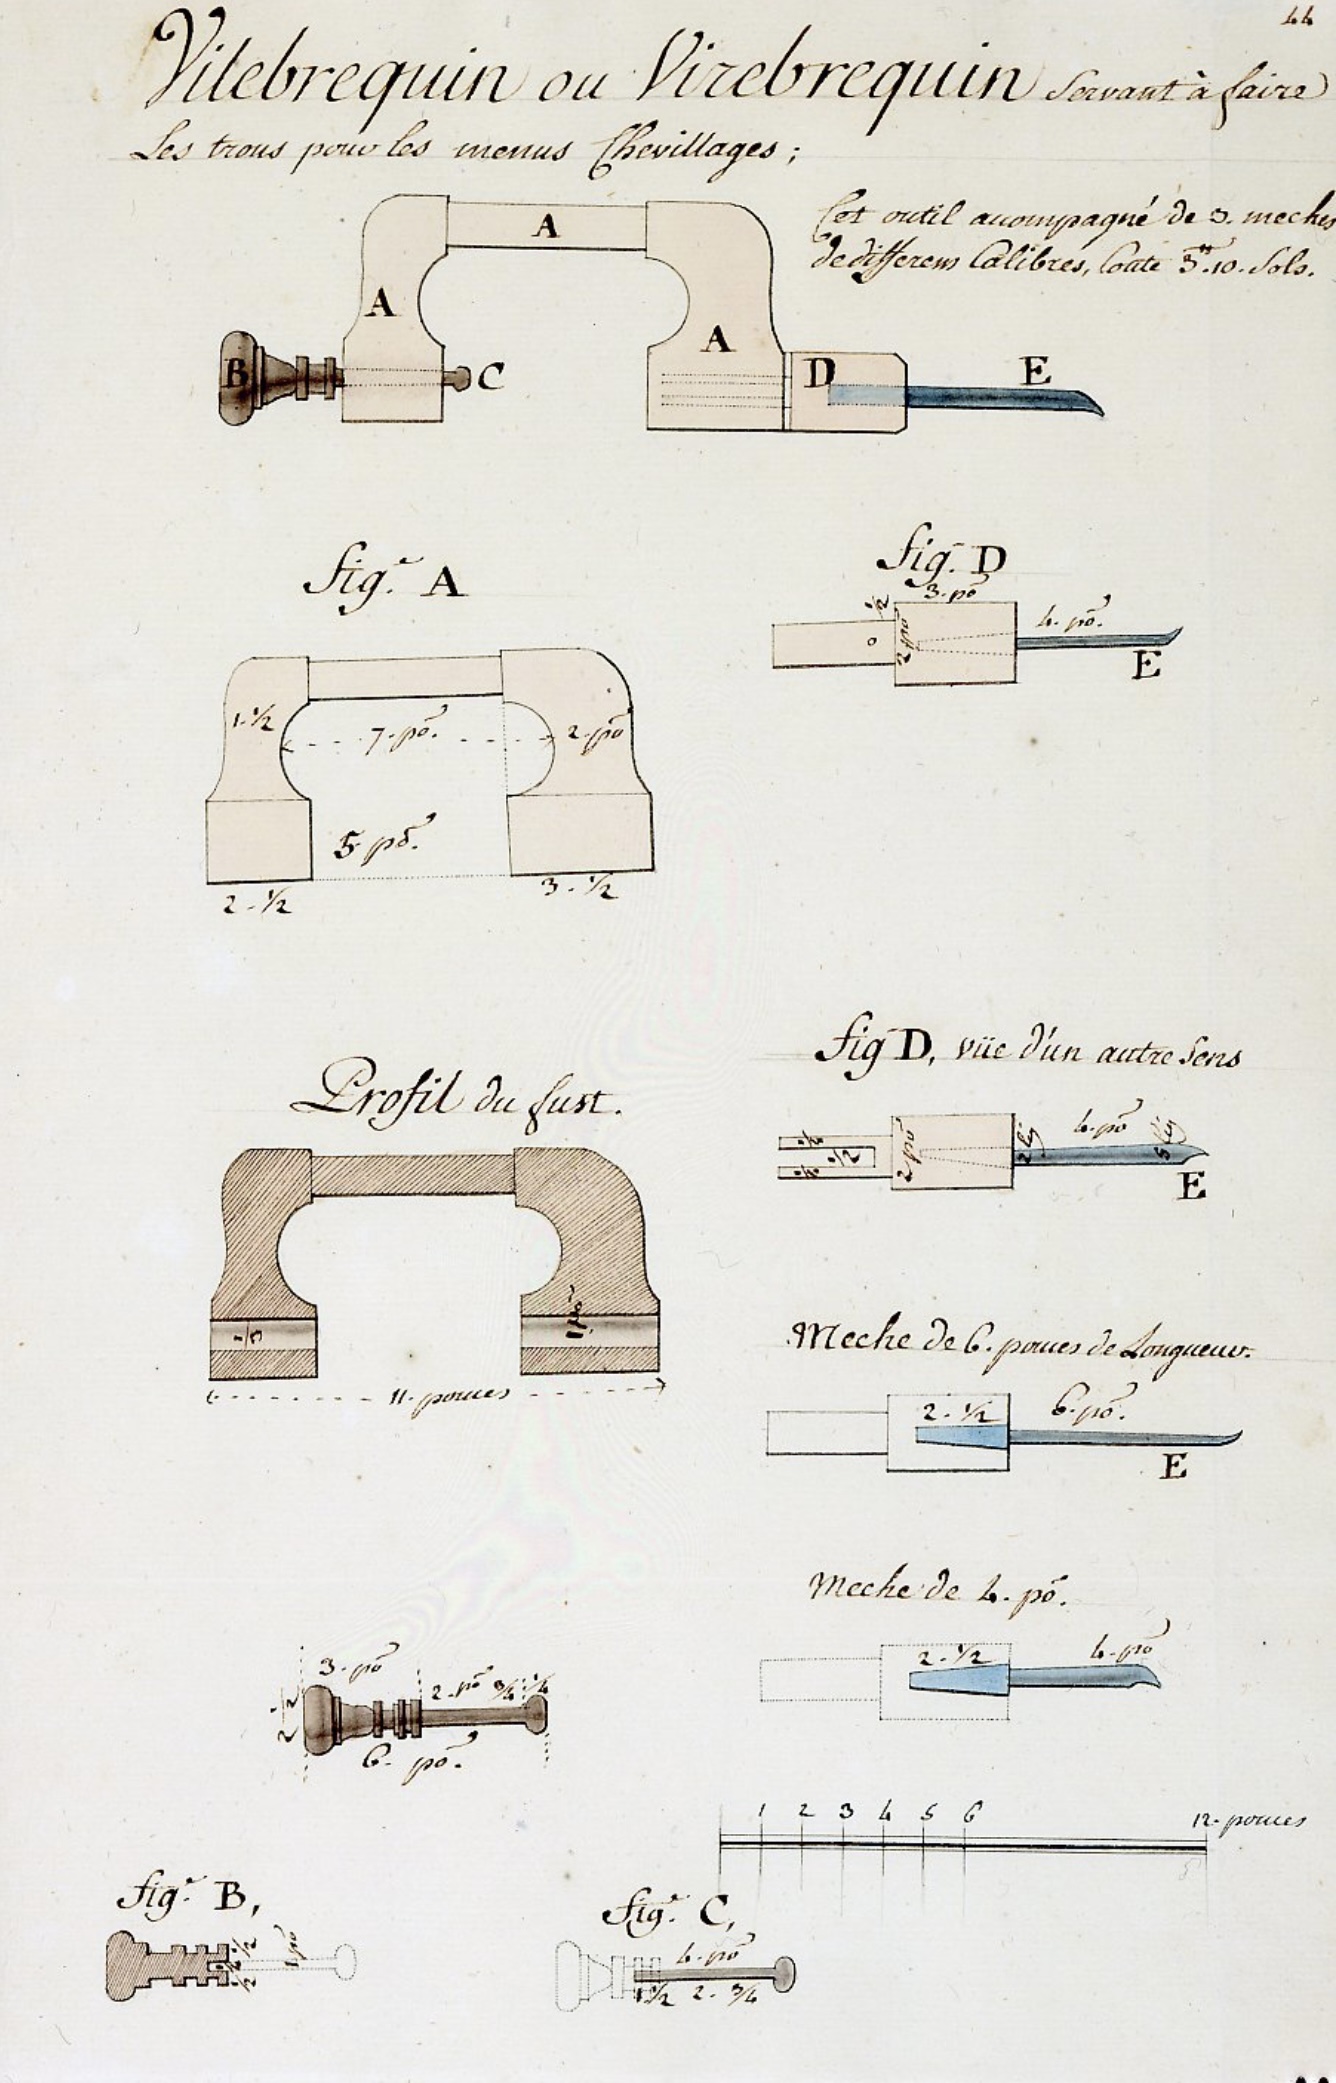 44
Vilebrequin ou Virebrequin Servant à faire
Les trous pour les menus Chevillages;
Cet outil acompagné de 3. meches
de differens Calibres, Coute 3.# 10. Sols.
A
A
A
B
C
D
E
fig.e A
1-1/2
7-po.
2-po
5-po.
2-1/2
3-1/2
fig. D
3-po
1/2
2 po
4-po.
E
Profil du fust.
11-pouces
fig D, vüe d'un autre Sens
1/2
1/2
2 po
4-po
E
Meche de 6. pouces de Longueur.
2-1/2
6-po.
E
Meche de 4. po.
2-1/2
4-po
3-po
2-po 3/4 1/4
2 1/2
6-po.
1 2 3 4 5 6 12-pouces
fig.e B,
1/2
1/2
fig.e C,
4-po
1 1/2 2-3/4